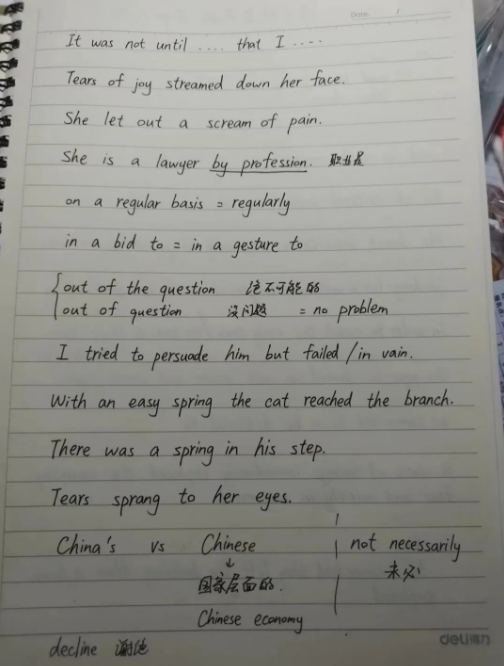 Date
It was not until .... that I ....
Tears of joy streamed down her face.
She let out a scream of pain.
She is a lawyer by profession. 职业是
on a regular basis = regularly
in a bid to = in a gesture to
out of the question 绝不可能的
out of question 没问题 = no problem
I tried to persuade him but failed / in vain.
With an easy spring the cat reached the branch.
There was a spring in his step.
Tears sprang to her eyes.
China's vs Chinese not necessarily
↓ 未必
国家层面的.
Chinese economy
decline 谢绝
deli得力